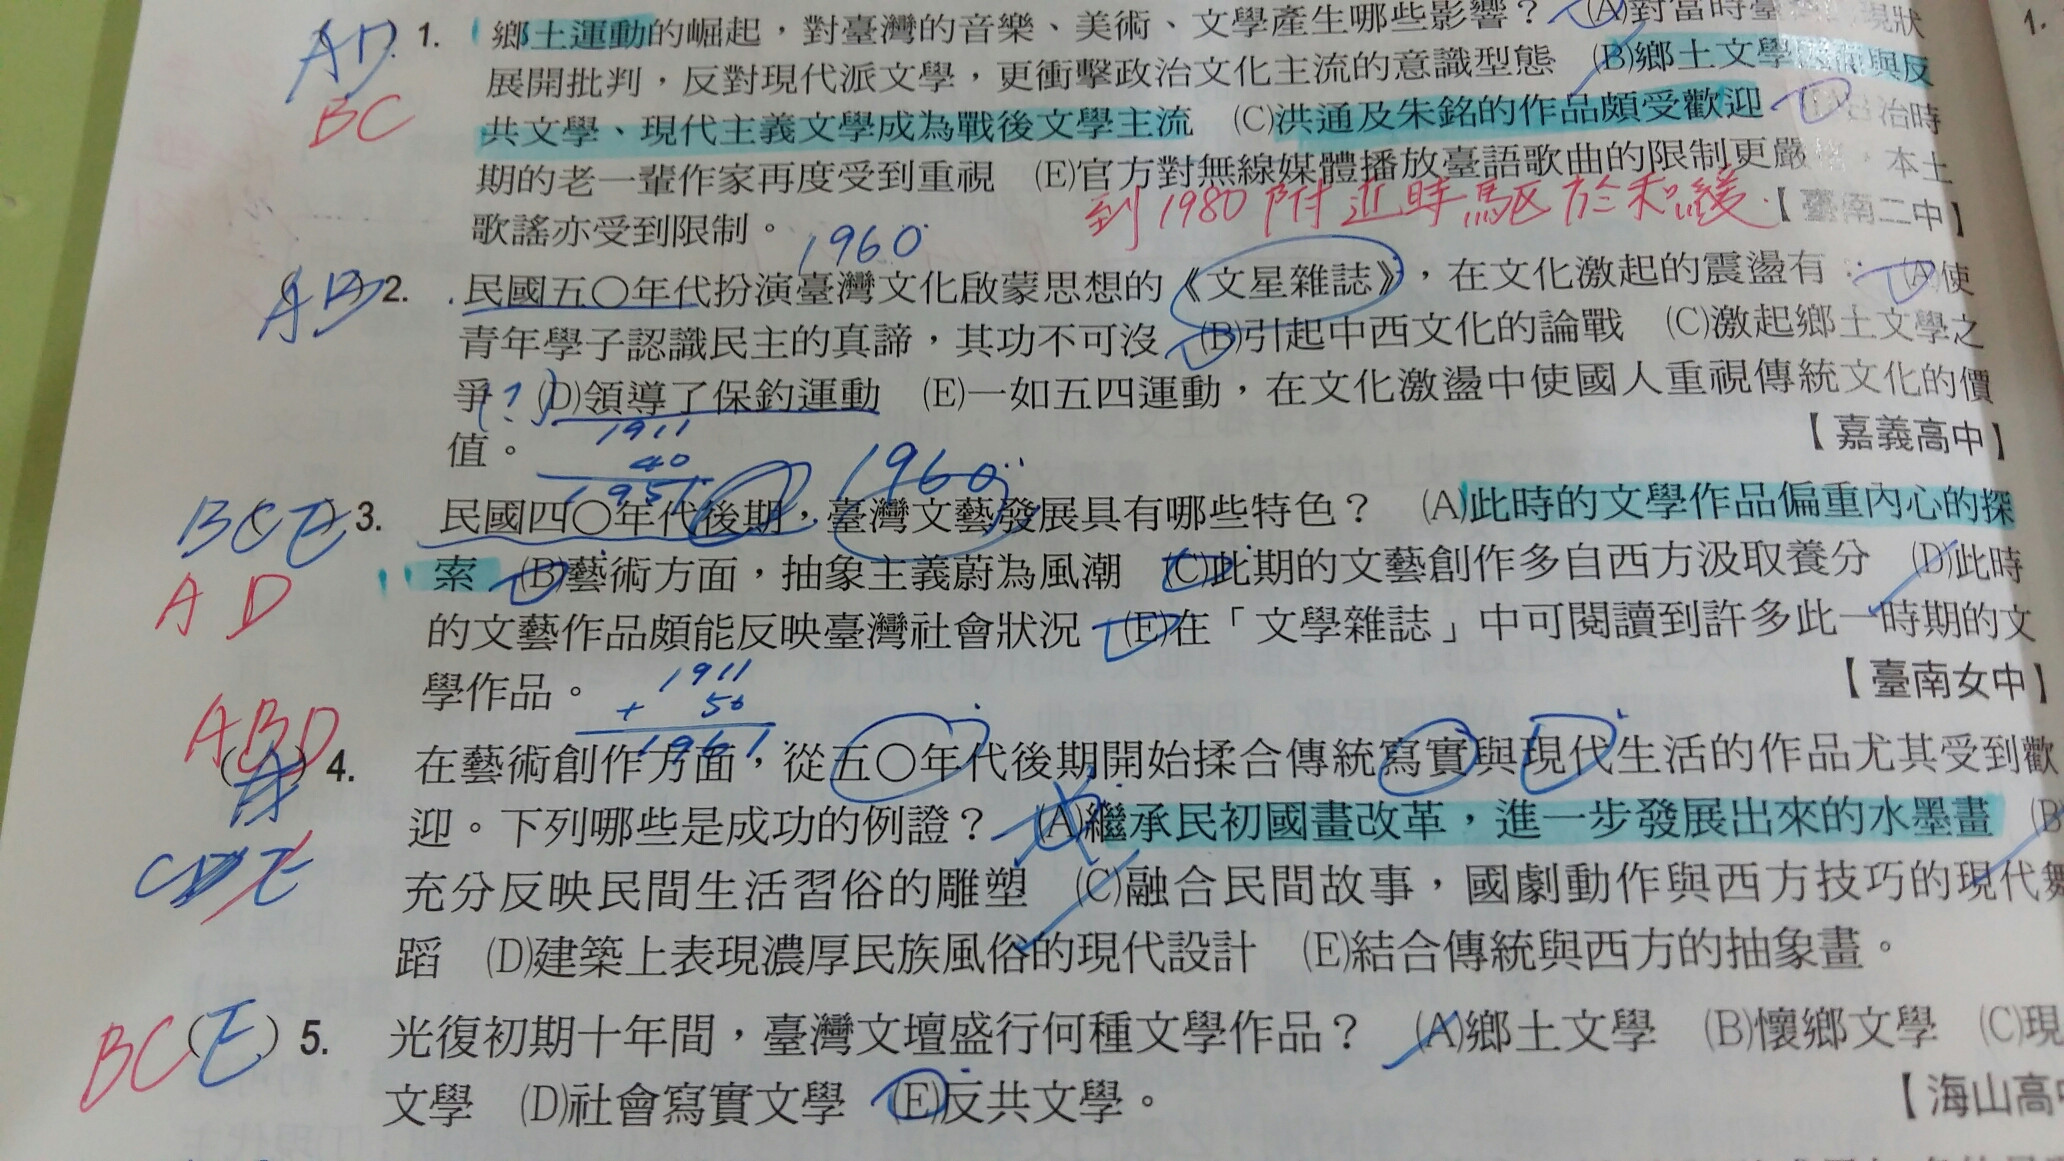 AD
1. 鄉土運動的崛起，對臺灣的音樂、美術、文學產生哪些影響？ (A)對當時臺 現狀
展開批判，反對現代派文學，更衝擊政治文化主流的意識型態 (B)鄉土文學 與反
BC
共文學、現代主義文學成為戰後文學主流 (C)洪通及朱銘的作品頗受歡迎 治時
期的老一輩作家再度受到重視 (E)官方對無線媒體播放臺語歌曲的限制更嚴 ，本土
到1980附近時驅於和緩.
歌謠亦受到限制。 【臺南二中】
1960
AB
2. 民國五〇年代扮演臺灣文化啟蒙思想的《文星雜誌》，在文化激起的震盪有： (A)使
青年學子認識民主的真諦，其功不可沒 (B)引起中西文化的論戰 (C)激起鄉土文學之
爭 (?) (D)領導了保釣運動 (E)一如五四運動，在文化激盪中使國人重視傳統文化的價
值。 【嘉義高中】
1911
40
1951
1960
BCE
3. 民國四〇年代後期，臺灣文藝發展具有哪些特色？ (A)此時的文學作品偏重內心的探
索 (B)藝術方面，抽象主義蔚為風潮 (C)此期的文藝創作多自西方汲取養分 (D)此時
AD
的文藝作品頗能反映臺灣社會狀況 (E)在「文學雜誌」中可閱讀到許多此一時期的文
學作品。 【臺南女中】
1911
+ 50
1961
ABD
4. 在藝術創作方面，從五〇年代後期開始揉合傳統寫實與現代生活的作品尤其受到歡
迎。下列哪些是成功的例證？ (A)繼承民初國畫改革，進一步發展出來的水墨畫 (B)
充分反映民間生活習俗的雕塑 (C)融合民間故事，國劇動作與西方技巧的現代舞
CDE
蹈 (D)建築上表現濃厚民族風俗的現代設計 (E)結合傳統與西方的抽象畫。
BC(E) 5. 光復初期十年間，臺灣文壇盛行何種文學作品？ (A)鄉土文學 (B)懷鄉文學 (C)現
文學 (D)社會寫實文學 (E)反共文學。 【海山高中
1.